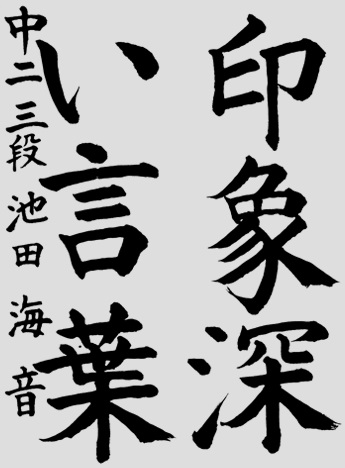 印象深
い言葉
中二三段池田海音